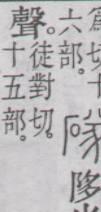 切十
六部。
隊隊
聲。徒對切。
十五部。